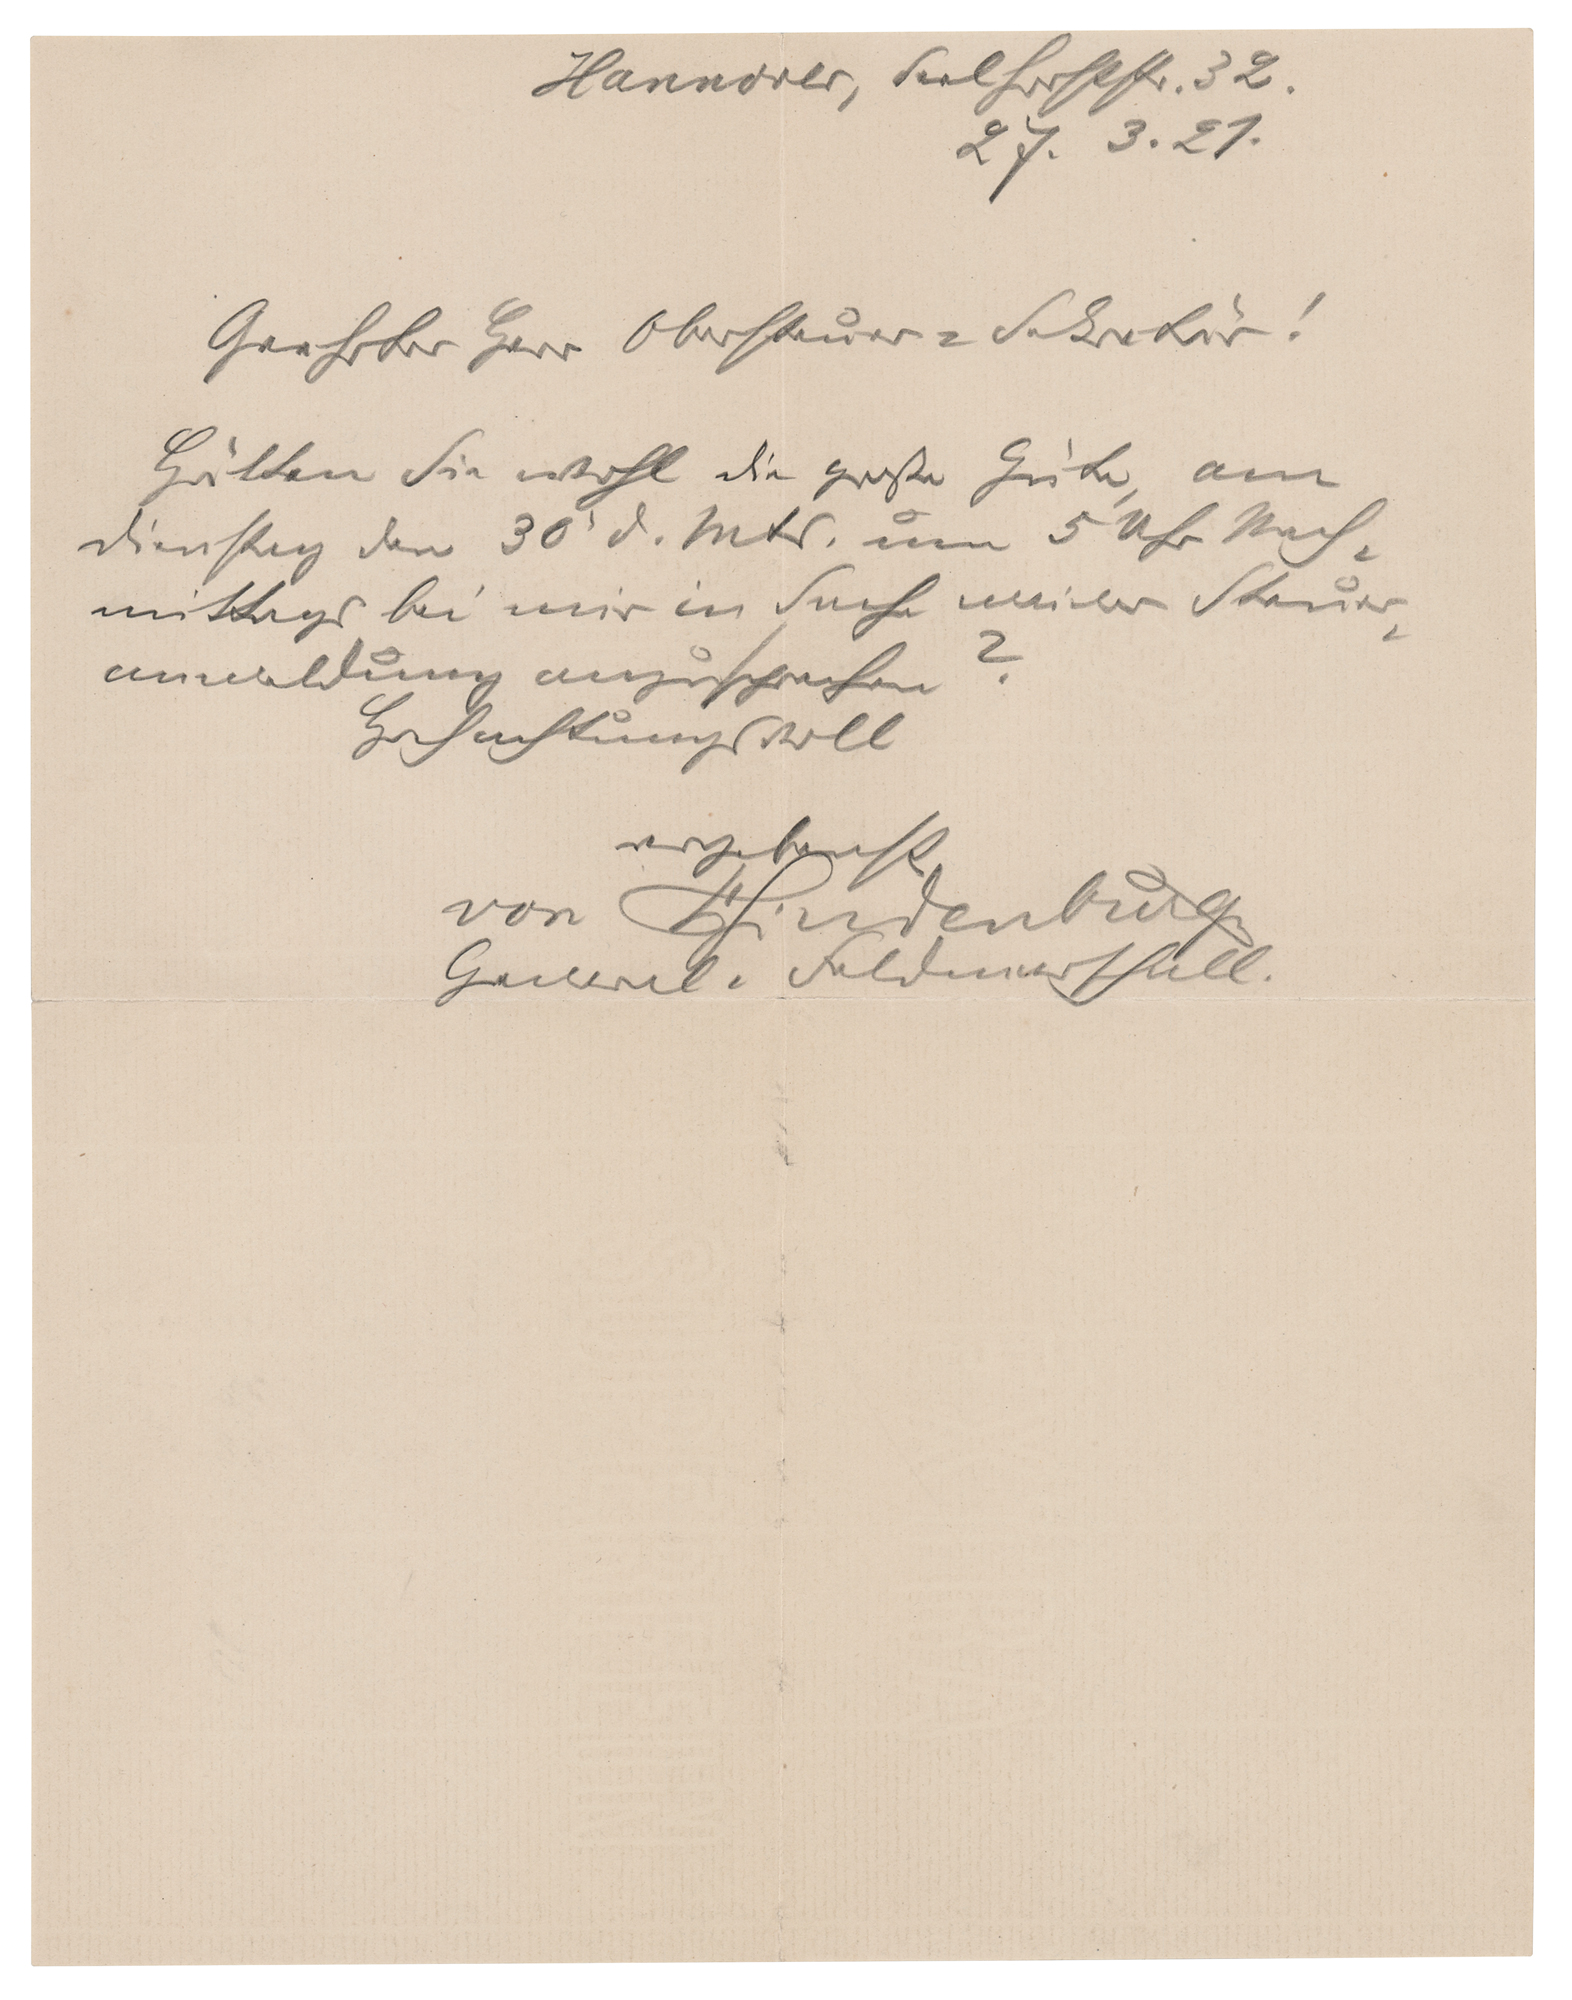 Hannover, Seelhorststr. 32.
27. 3. 21.
Geehrter Herr Obersteuer-Sekretär!
Hätten Sie wohl die große Güte, am
Dienstag den 30' d. Mts. um 5 Uhr Nach-
mittags bei mir in Sache meiner Steuer-
anmeldung anzusprechen?
Hochachtungsvoll
ergebenst
von Hindenburg
General-Feldmarschall.